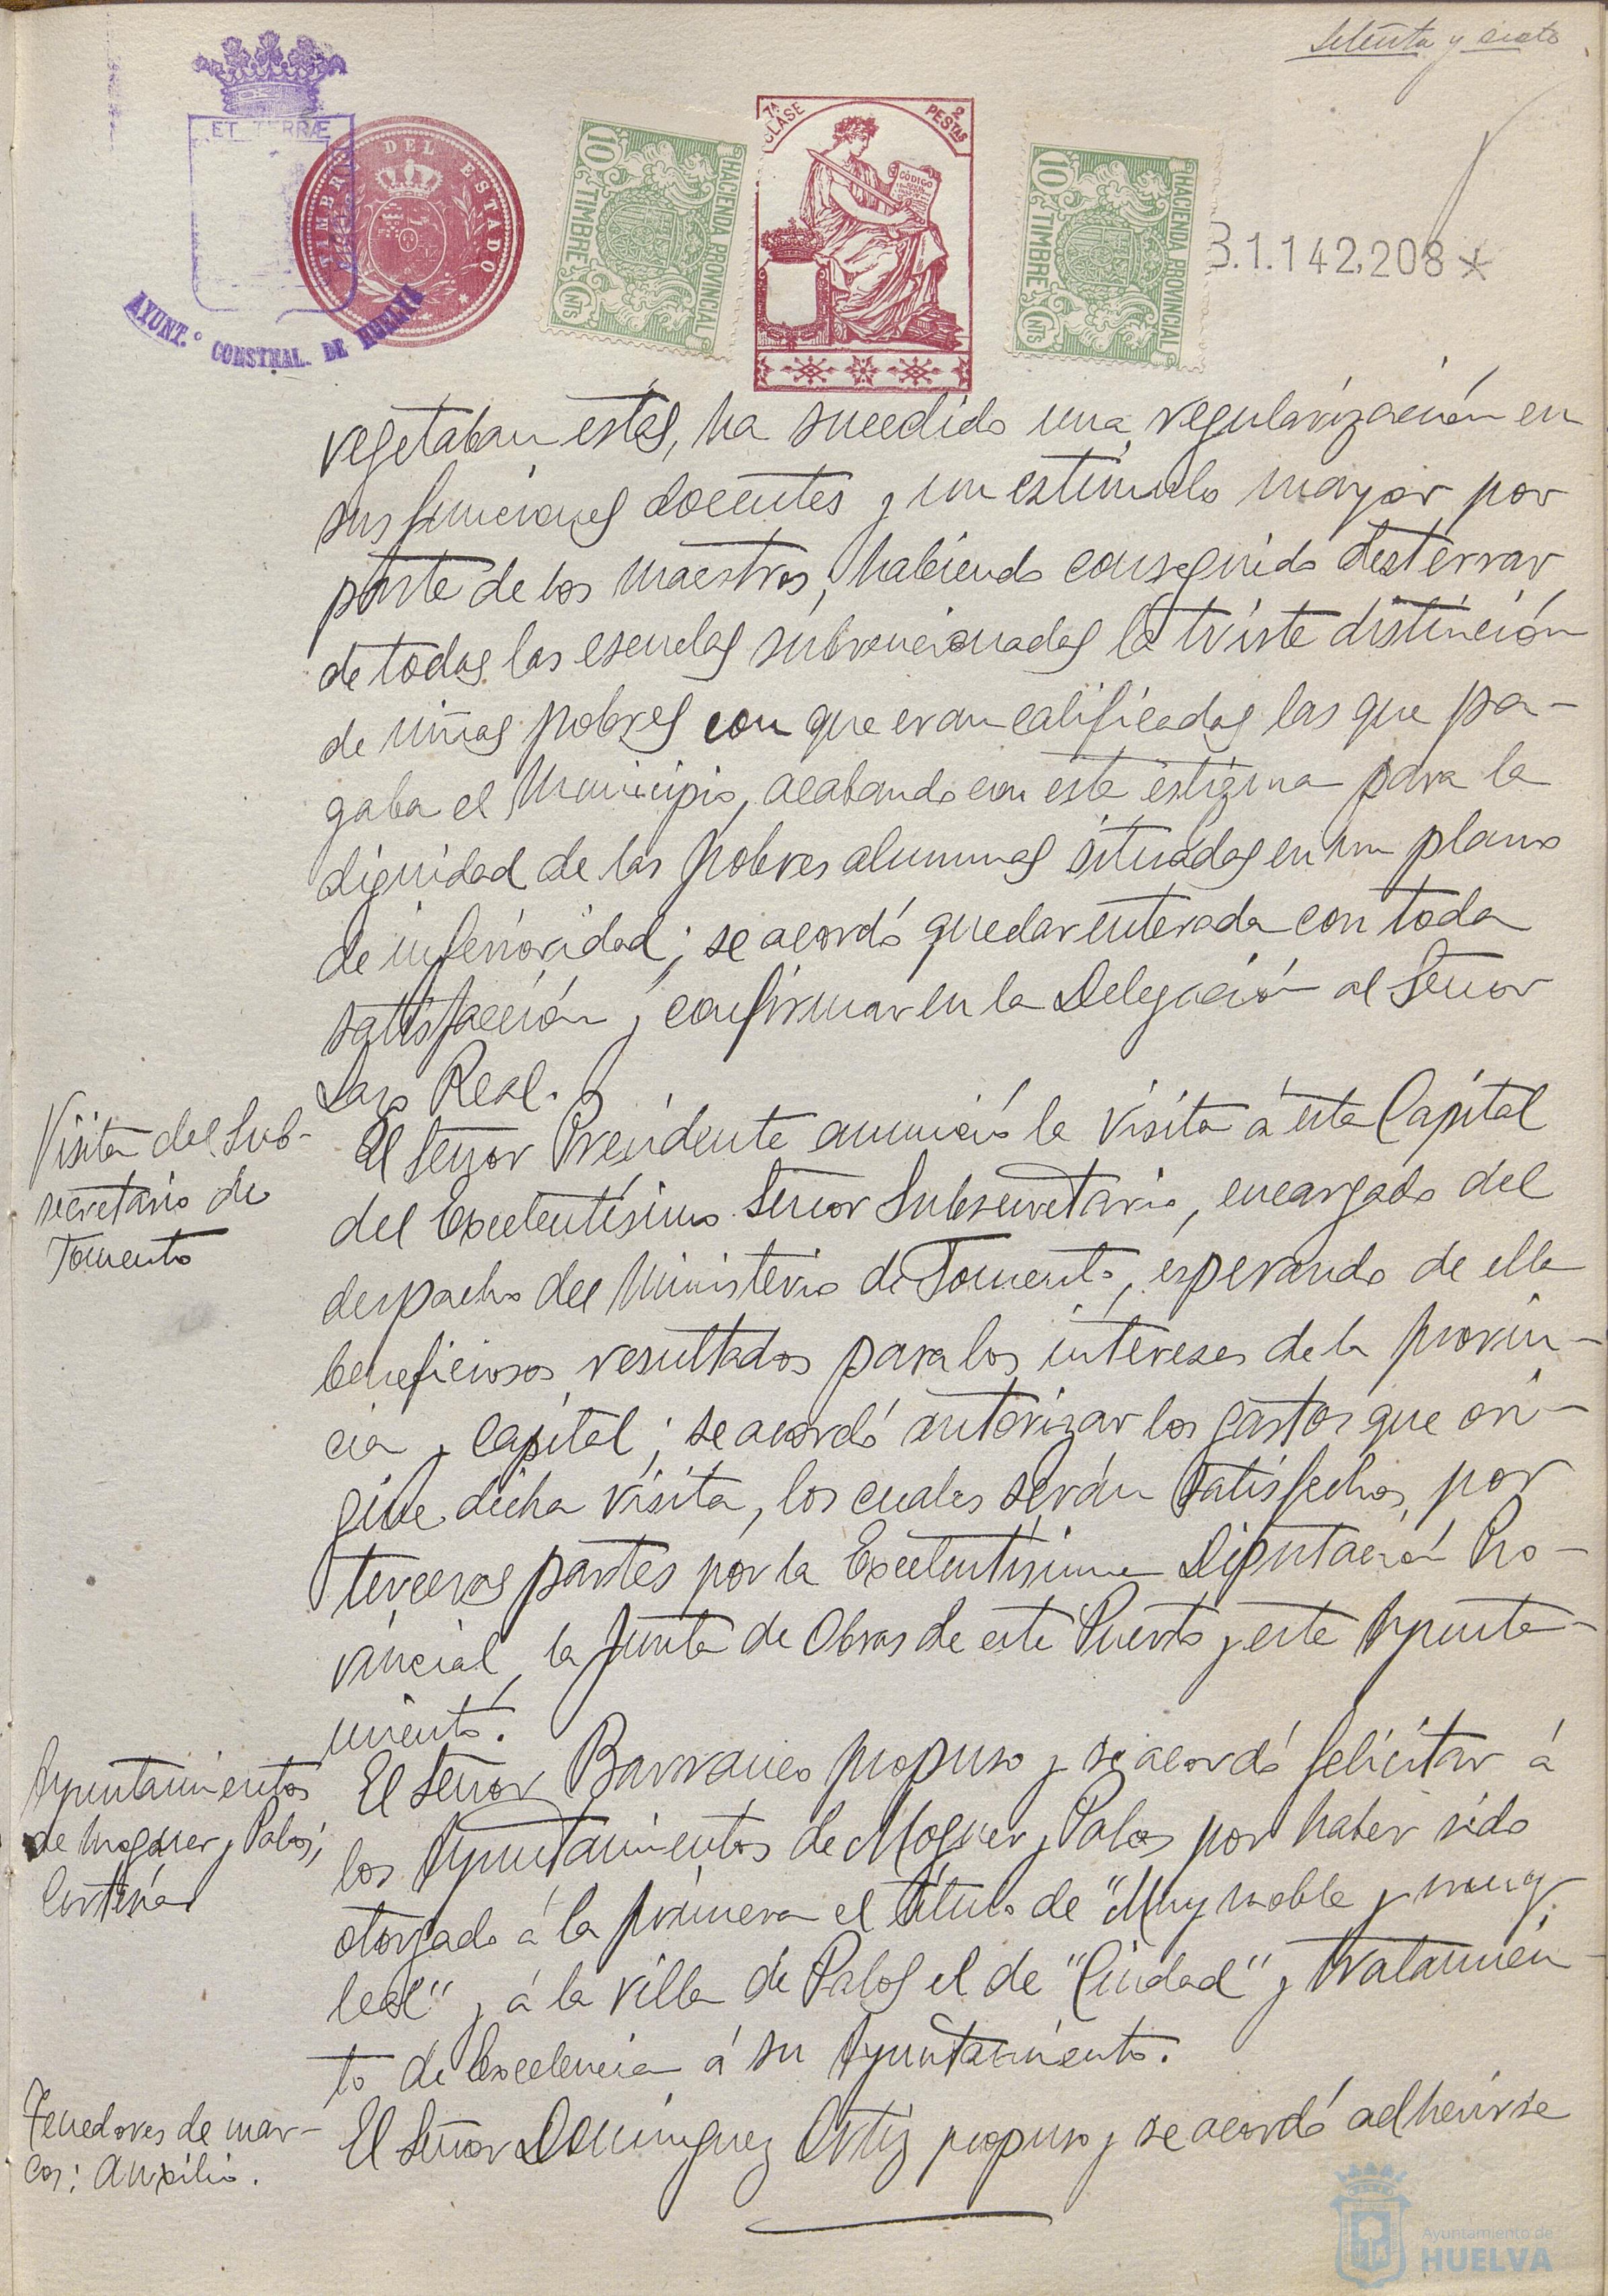 Setenta y siete
ET TERRÆ
TIMBRE DEL ESTADO
AYUNT.º CONSTNAL. DE HUELVA
10 Cts TIMBRE
HACIENDA PROVINCIAL
7ª CLASE
2 PESTAS
CÓDIGO
10 Cts TIMBRE
HACIENDA PROVINCIAL
B.1.142,208*
vegetaban estas, ha sucedido una regularización en
sus funciones docentes y un estímulo mayor por
parte de los maestros, habiendo conseguido desterrar
de todas las escuelas subvencionadas la triste distinción
de niñas pobres con que eran calificadas las que pa-
gaba el Municipio, acabando con este estigma para la
dignidad de las pobres alumnas situadas en un plano
de inferioridad; se acordó quedar enterada con toda
satisfacción y confirmar en la Delegación al Señor
Lazo Real.
Visita del Sub-
secretario de
Fomento
El Señor Presidente anunció la visita á esta Capital
del Excelentísimo Señor Subsecretario, encargado del
despacho del Ministerio de Fomento, esperando de ella
beneficiosos resultados para los intereses de la provin-
cia y capital; se acordó autorizar los gastos que ori-
gine dicha visita, los cuales serán satisfechos por
terceras partes por la Excelentísima Diputación Pro-
vincial, la Junta de Obras de este Puerto y este Ayunta-
miento.
Ayuntamientos
de Moguer y Palos;
Cortesía
El Señor Barranco propuso y se acordó felicitar á
los Ayuntamientos de Moguer y Palos por haber sido
otorgado á la primera el título de "Muy noble y muy
leal" y á la villa de Palos el de "Ciudad" y tratamien-
to de Excelencia á su Ayuntamiento.
Tenedores de mar-
cos: Auxilio.
El Señor Domínguez Ortiz propuso y se acordó adherirse
Ayuntamiento de
HUELVA